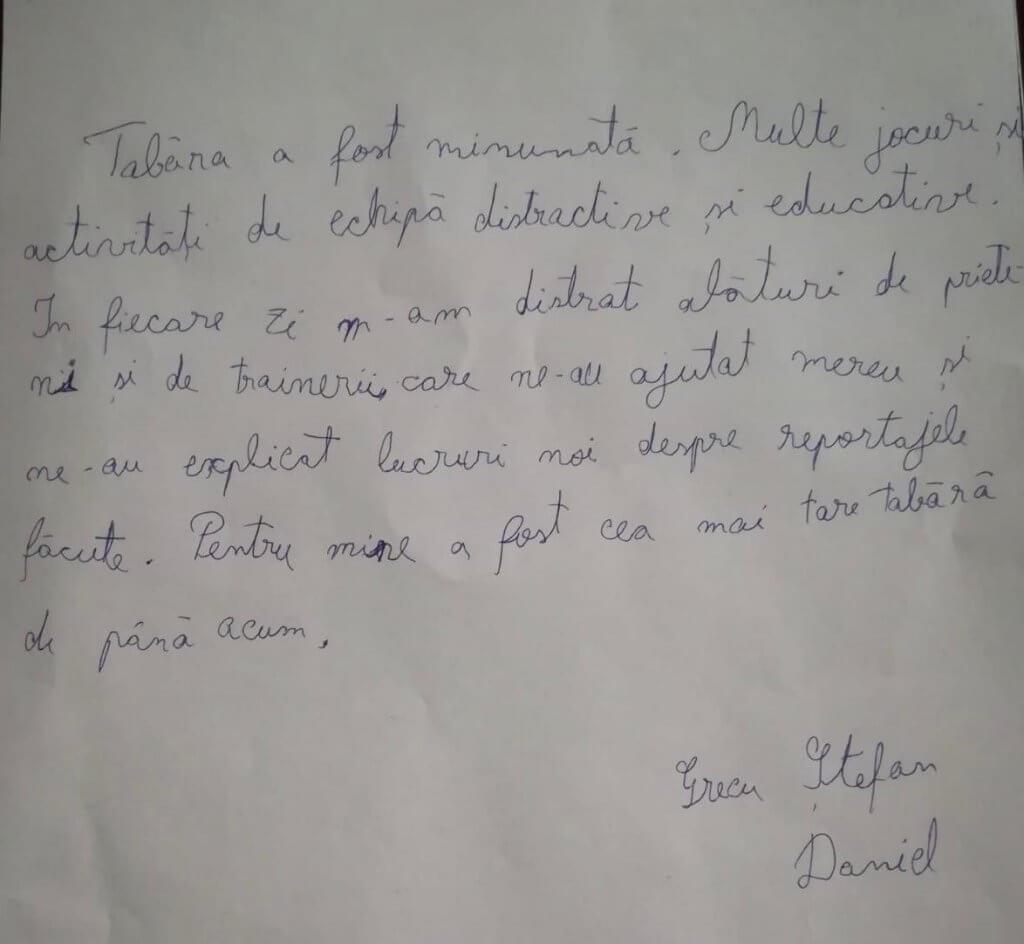 Tabăra a fost minunată. Multe jocuri și
activități de echipă distractive și educative.
In fiecare zi m-am distrat alături de priete-
ni și de trainerii, care ne-au ajutat mereu și
ne-au explicat lucruri noi despre reportajele
făcute. Pentru mine a fost cea mai tare tabără
de până acum.
Grecu Ștefan
Daniel